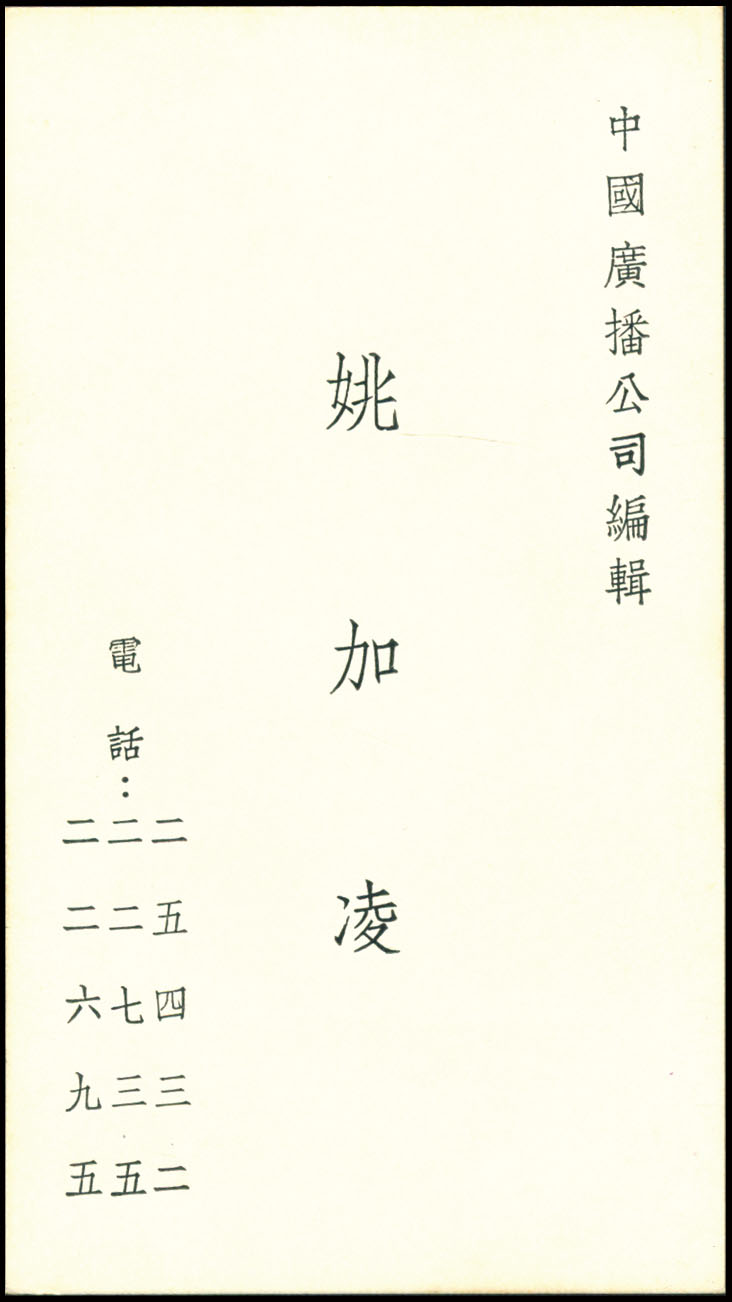 中國廣播公司編輯
姚加凌
電話：
二五四三二
二二七三五
二二六九五